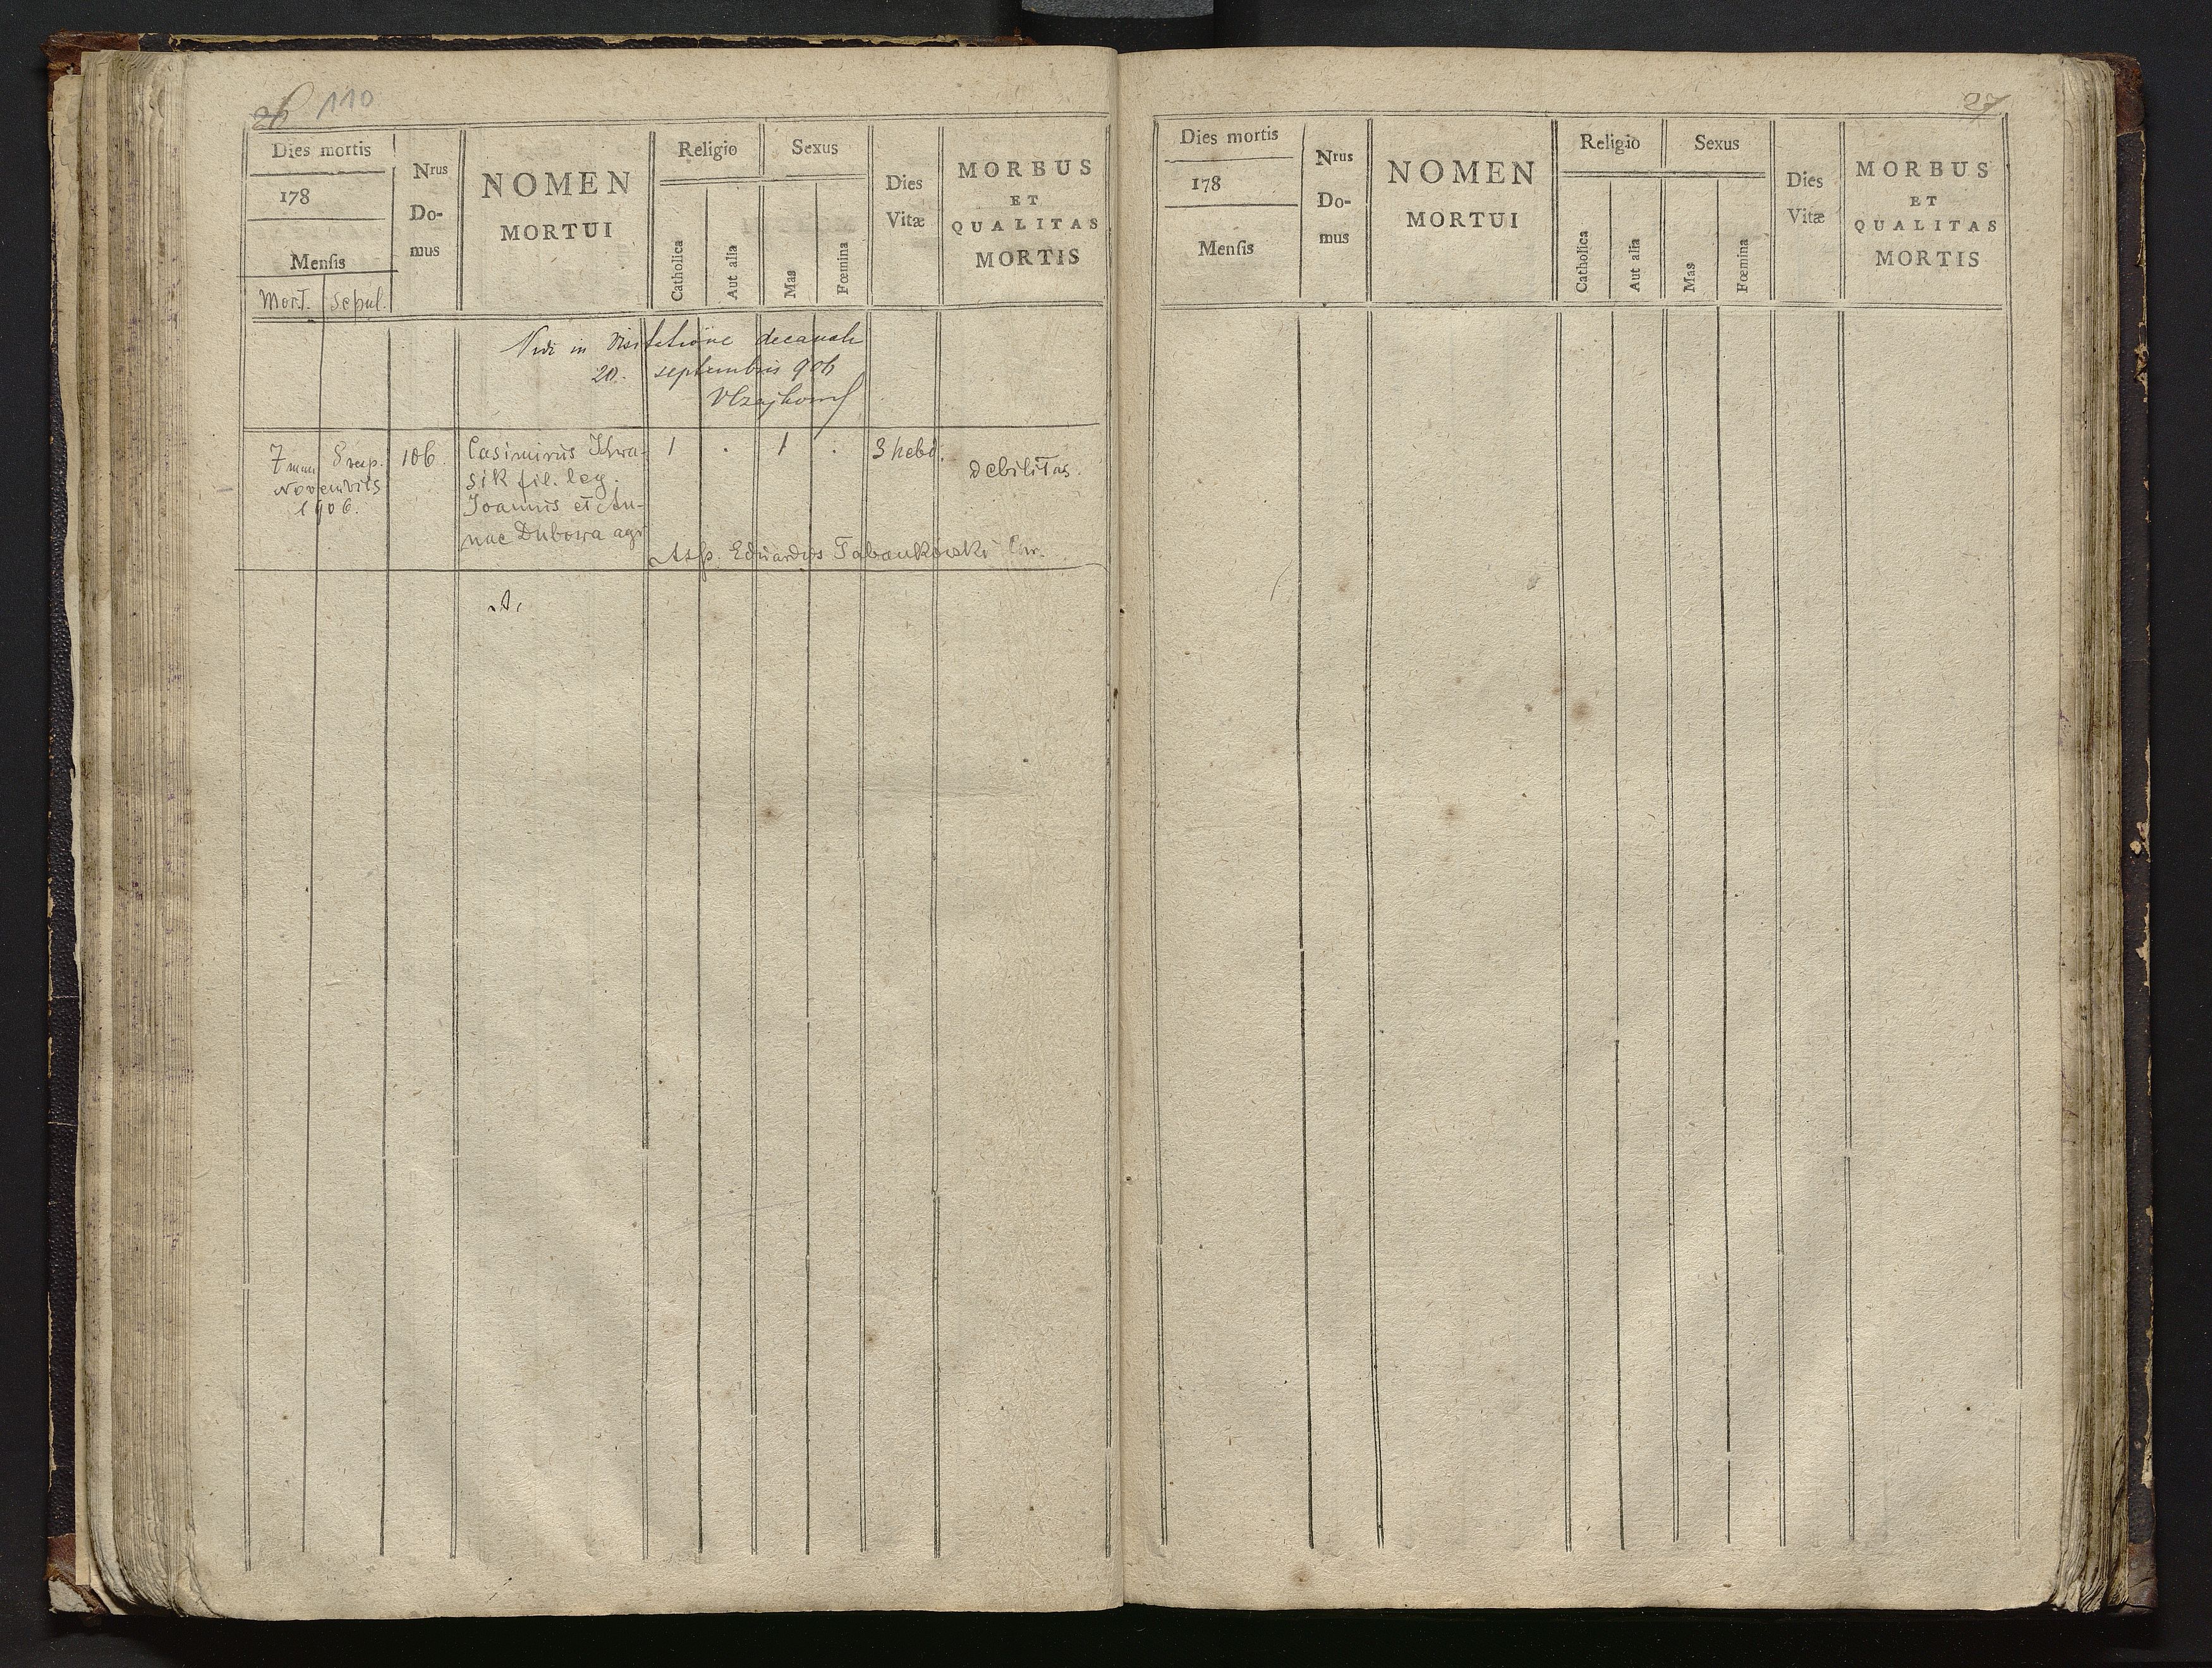 26 110
Dies mortis
178
Mensis
Mort. Sepul.
Nrus
Do-
mus
NOMEN
MORTUI
Religio
Catholica
Aut alia
Sexus
Mas
Fœmina
Dies
Vitæ
MORBUS
ET
QUALITAS
MORTIS
Vidi in Visitatione decanali
20. septembris 906
7 8 106. Casimirus
sik fil. leg.
Joannis et An-
nae Dubowa agr
Novembris
1906.
1 . 1 . 3 hebd. debilitas.
Assp. Eduardus Tabaukowski Cur.
27
Dies mortis
178
Mensis
Nrus
Do-
mus
NOMEN
MORTUI
Religio
Catholica
Aut alia
Sexus
Mas
Fœmina
Dies
Vitæ
MORBUS
ET
QUALITAS
MORTIS